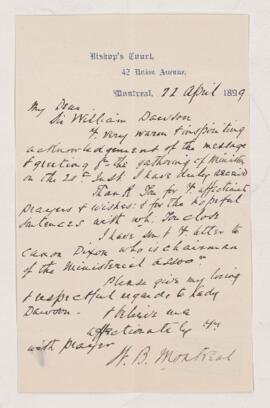 Bishop's Court,
42 Union Avenue,
Montreal, 22 April 1899
My Dear
Sir William Dawson
Yr very warm & inspiriting
acknowledgement of the message
& greeting fr the gathering of Ministers
on the 20th Inst I have duly received
Thank You for yr affectionate
prayers & wishes: & for the hopeful
sentences with wh. You close
I have sent yr letter to
Canon Dixon who is chairman
of the Ministerial Assocn
Please give my loving
& respectful regards to Lady
Dawson. & believe me
affectionately yrs
with prayer
W. B. Montreal